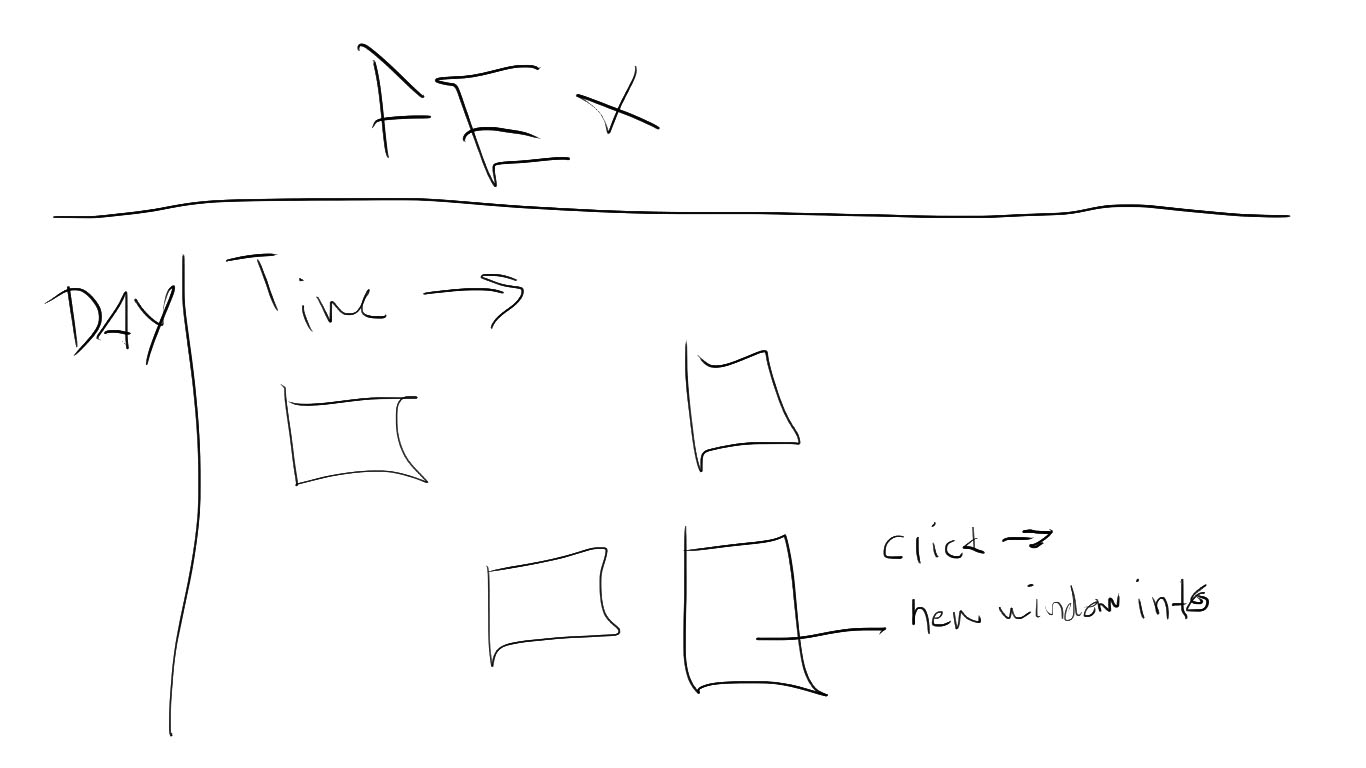 AEX
DAY
Time →
click →
new window info